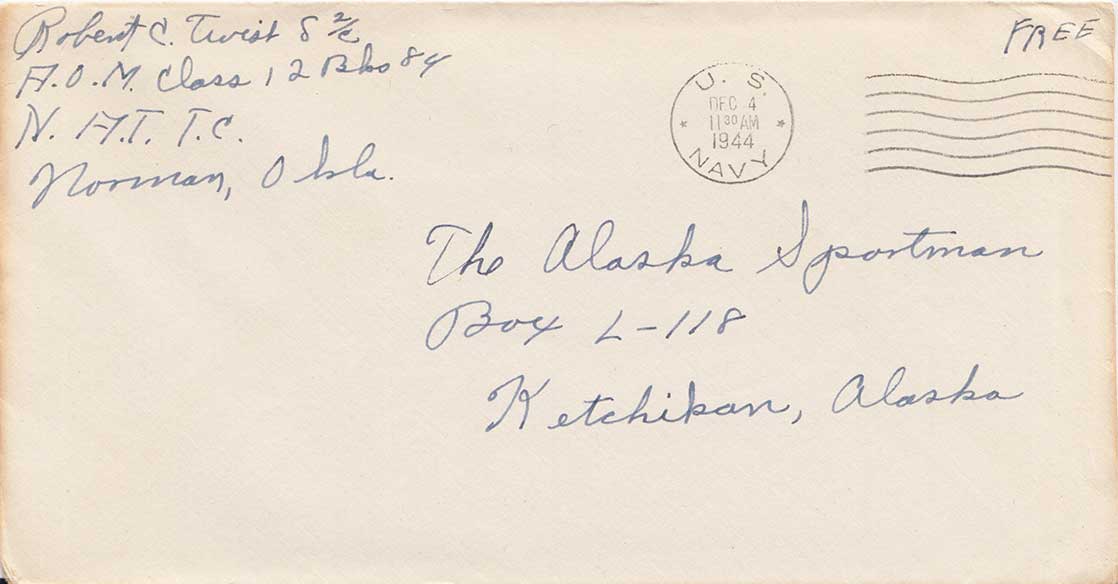 Robert C. Twist S 2/c
A.O.M. Class 12 Bks 84
N. A.T. T.C.
Norman, Okla.
FREE
U. S.
DEC 4
11 30 AM
1944
NAVY
The Alaska Sportman
Box L-118
Ketchikan, Alaska